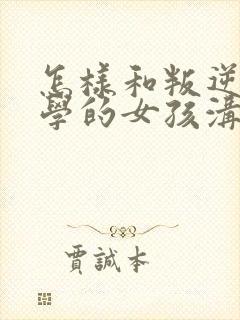 怎樣和叛逆
學的女孩溝
賈誠本